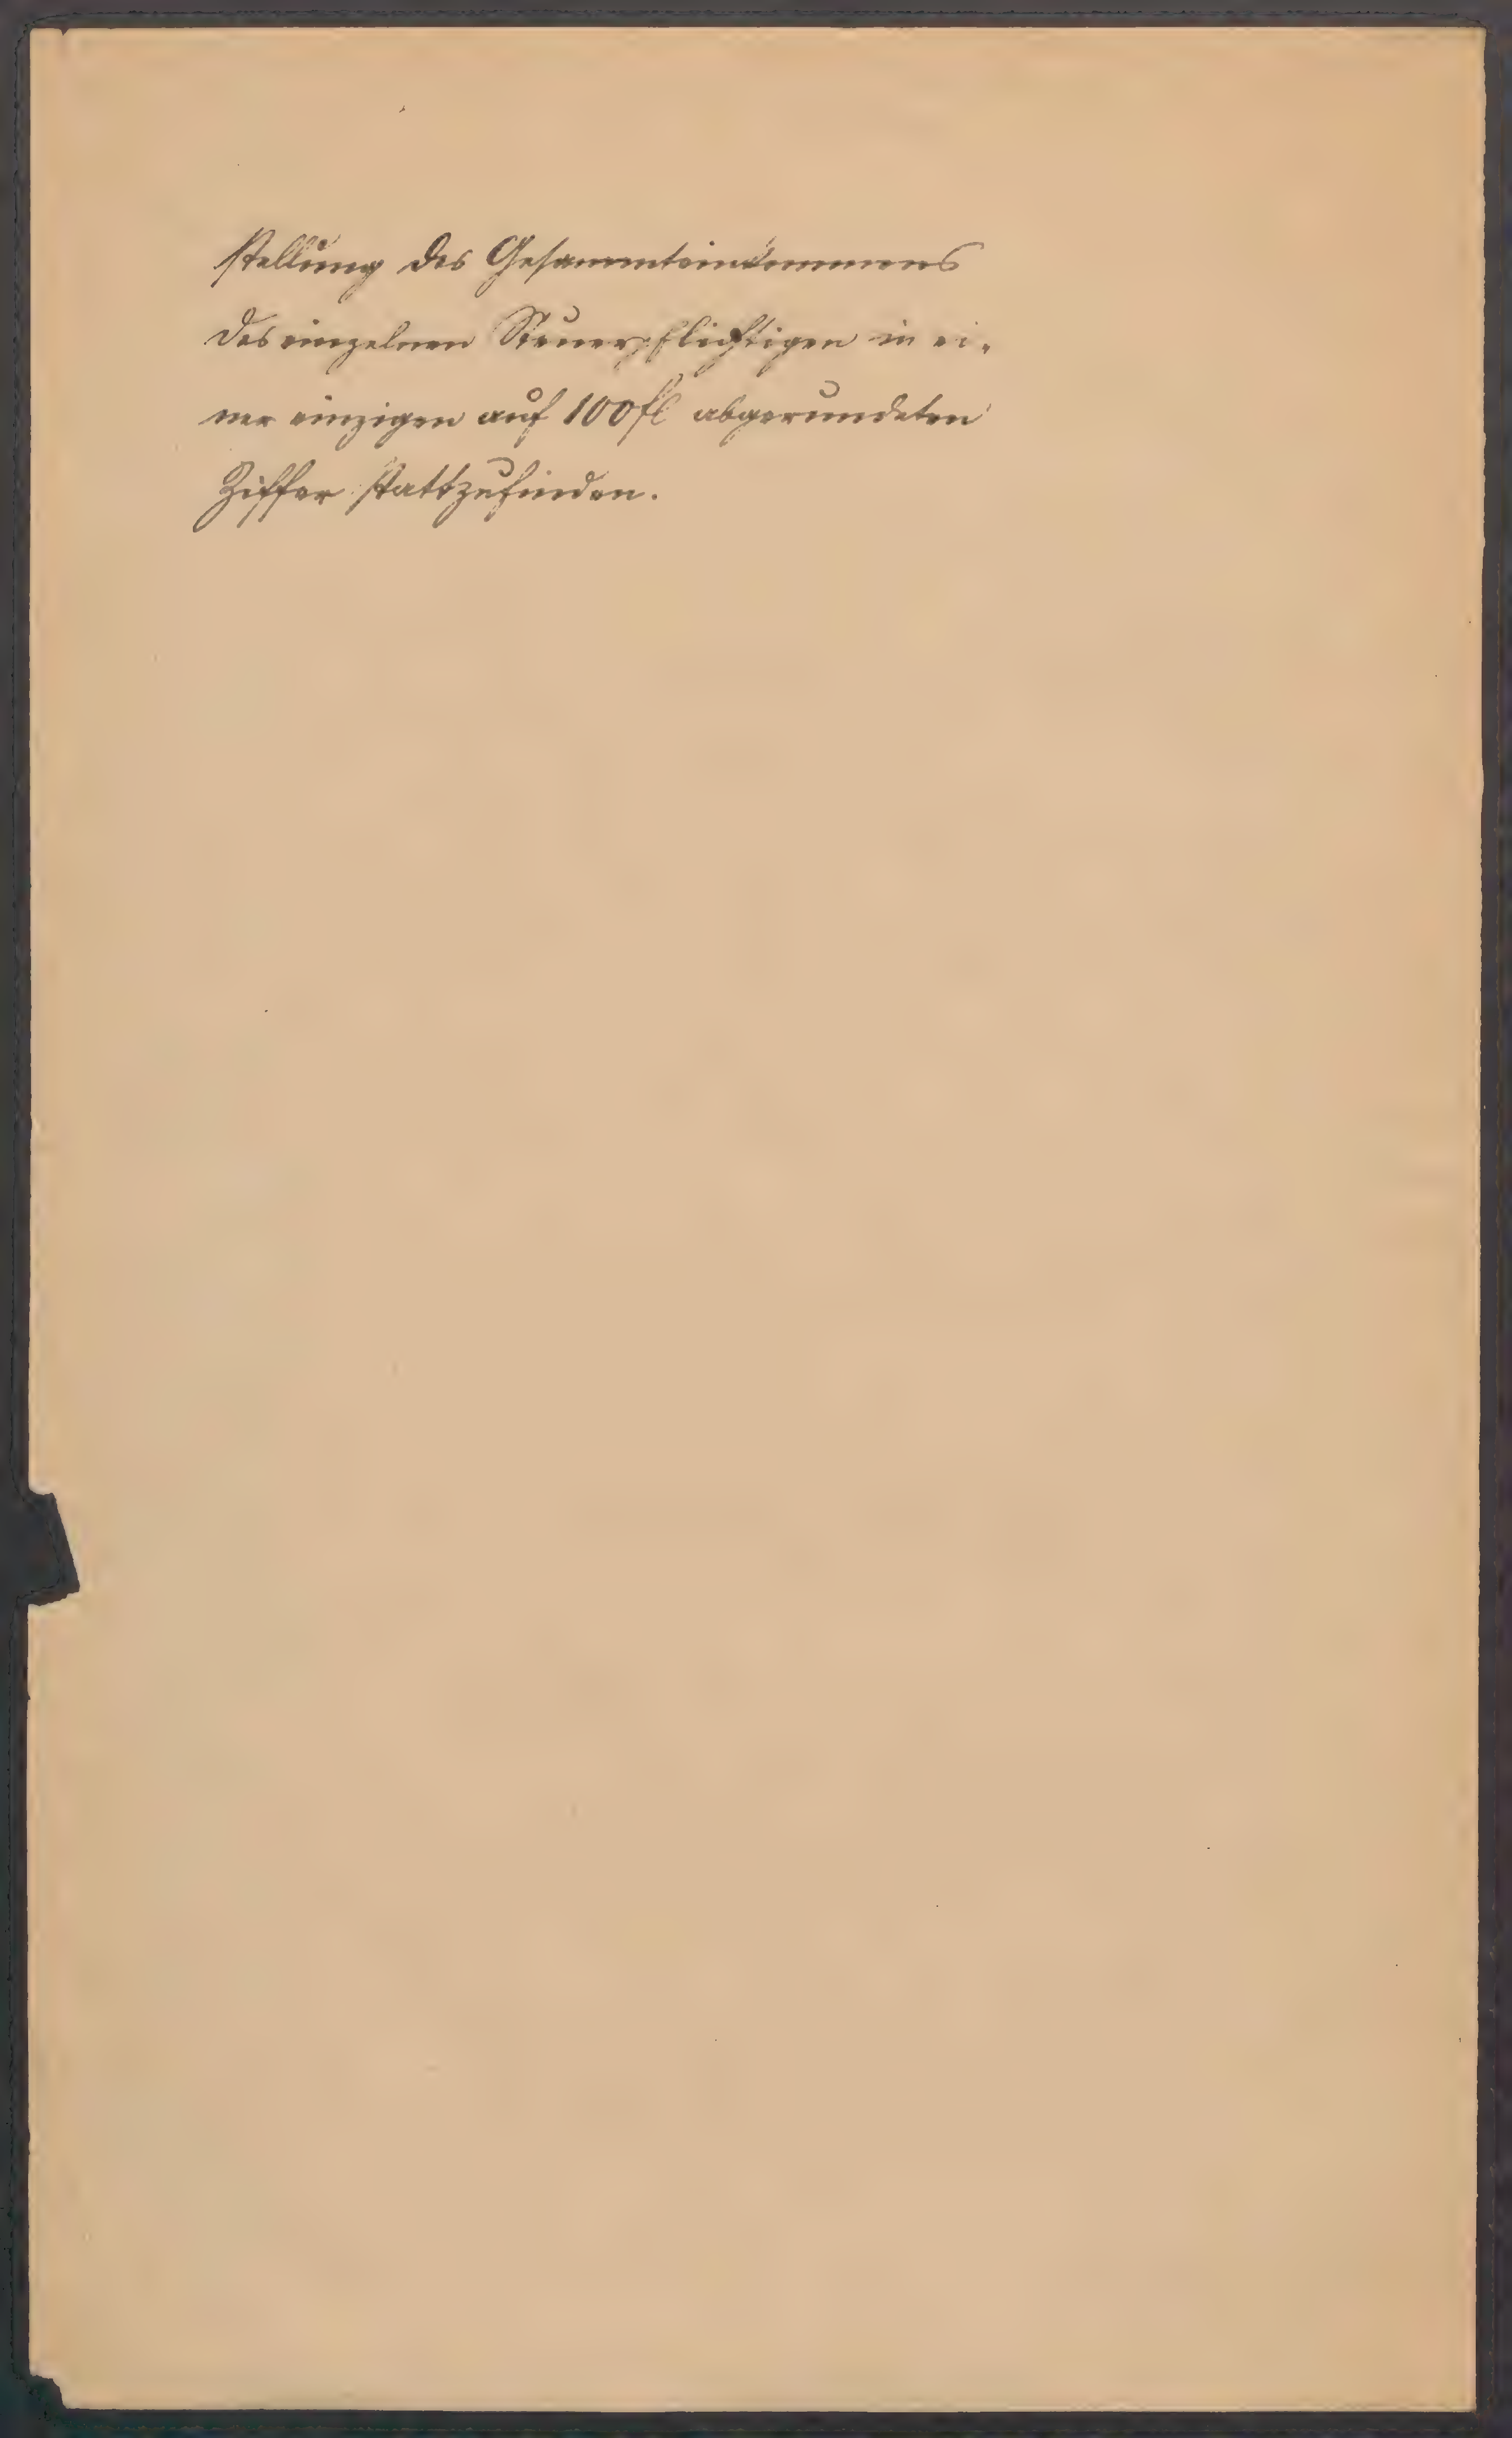 stellung des Gesammteinkommens
des einzelnen Steuerpflichtigen in ei-
ner einzigen auf 100 fl abgerundeten
Ziffer stattzufinden.